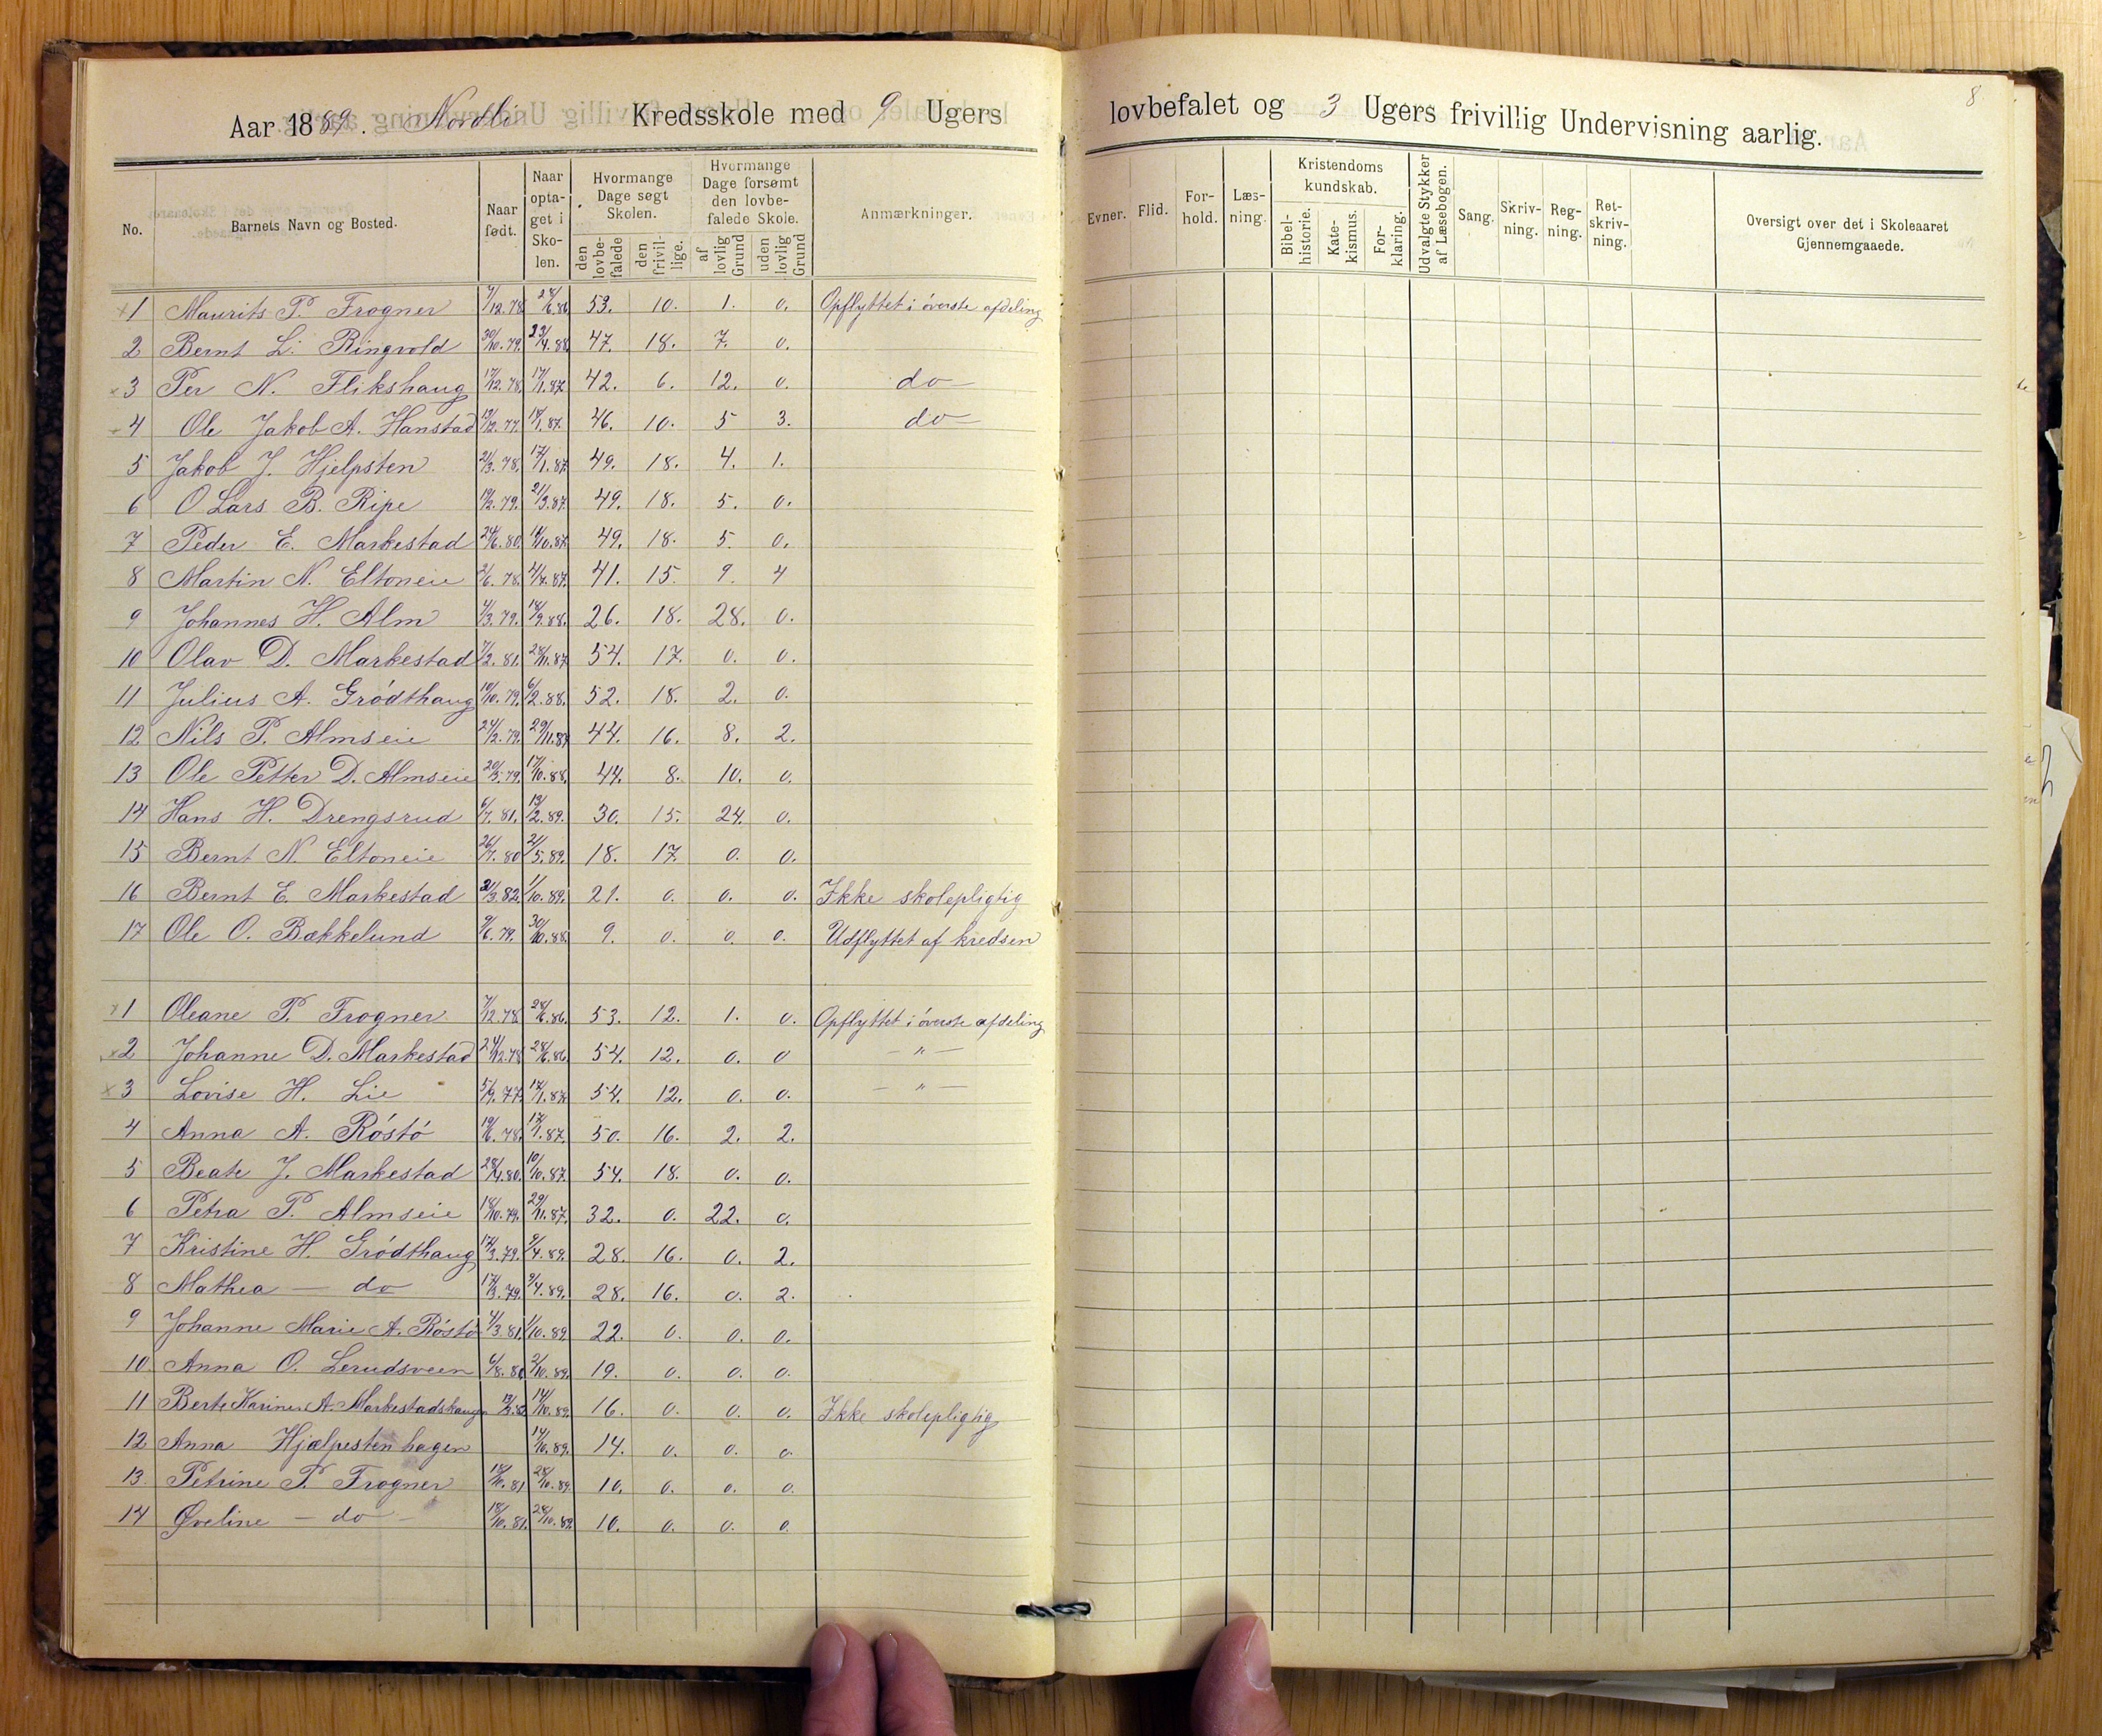 Aar 1889. Nordli Kredsskole med 9 Ugers lovbefalet og 3 Ugers frivillig Undervisning aarlig.
8
No. Barnets Navn og Bosted. Naar født. Naar optaget i Skolen. Hvormange Dage søgt Skolen. den lovbefalede den frivillige. Hvormange Dage forsømt den lovbefalede Skole. af lovlig Grund uden lovlig Grund Anmærkninger.
Evner. Flid. Forhold. Læsning. Kristendomskundskab. Bibelhistorie. Katekismus. Forklaring. Udvalgte Stykker af Læsebogen. Sang. Skrivning. Regning. Retskrivning. Oversigt over det i Skoleaaret Gjennemgaaede.
x 1 Maurits P. Frogner 7/12.78 28/6.86 53. 10. 1. 0. Opflyttet i øverste afdeling
2 Bernt L. Ringvold 30/10.79. 23/4.88 47. 18. 7. 0.
x 3 Per N. Flikshaug 17/12.78. 17/1.87. 42. 6. 12. 0. do —
4 Ole Jakob A. Hanstad 19/12.77. 18/1.87. 46. 10. 5 3. do —
5 Jakob J. Hjelpsten 21/3.78. 17/1.87. 49. 18. 4. 1.
6 O Lars B. Ripe 19/2.79. 21/3.87. 49. 18. 5. 0.
7 Peder E. Markestad 24/6.80. 10.87. 49. 18. 5. 0.
8 Martin N. Eltoneie 2/6.78. 4/7.87. 41. 15. 9. 4
9 Johannes H. Alm 4/3.79. 18/9.88. 26. 18. 28. 0.
10 Olav D. Markestad 7/2.81. 28/11.87 54. 17. 0. 0.
11 Julius A. Grødthaug 10/10.79. 6/2.88. 52. 18. 2. 0.
12 Nils P. Almseie 24/2.79. 29/11.87 44. 16. 8. 2.
13 Ole Petter D. Almseie 20/3.79. 17/10.88. 44. 8. 10. 0.
14 Hans H. Drengsrud 6/7.81. 19/2.89. 30. 15. 24. 0.
15 Bernt N. Eltoneie 26/7.80 21/5.89. 18. 17. 0. 0.
16 Bernt E. Markestad 3.82. 1/10.89. 21. 0. 0. 0. Ikke skolepligtig
17 Ole O. Bækkelund 9/6.79. 30/10.88. 9. 0. 0. 0. Udflyttet af kredsen
x 1 Oleane P. Frogner 7/12.78 28/6.86. 53. 12. 1. 0. Opflyttet i øverste afdeling
x 2 Johanne D. Markestad 24/12.78 28/6.86 54. 12. 0. 0 — " —
x 3 Lovise H. Lie 5/9.77. 17/1.87. 54. 12. 0. 0. — " —
4 Anna A. Røstø 19/6.78. 17/1.87. 50. 16. 2. 2.
5 Beate J. Markestad 28/4.80. 10/10.87. 54. 18. 0. 0.
6 Petra P. Almseie 18/10.79. 29/11.87. 32. 0. 22. 0.
7 Kristine H. Grødthaug 17/3.79. 9/4.89. 28. 16. 0. 2.
8 Mathea — do 17/3.79. 9/4.89. 28. 16. 0. 2.
9 Johanne Marie A. Røstø 4/3.81. 1/10.89. 22. 0. 0. 0.
10. Anna O. Lerudsveen 6/8.80 2/10.89. 19. 0. 0. 0.
11 Berte Karine A. Markestadshaugen 14/10.89. 16. 0. 0. 0. Ikke skolepligtig
12 Anna Hjælpestenhagen 14/10.89. 14. 0. 0. 0
13. Petrine P. Frogner 18/10.81 28/10.89. 10. 0. 0. 0.
14 Øveline — do — 18/10.81. 28/10.89. 10. 0. 0. 0.